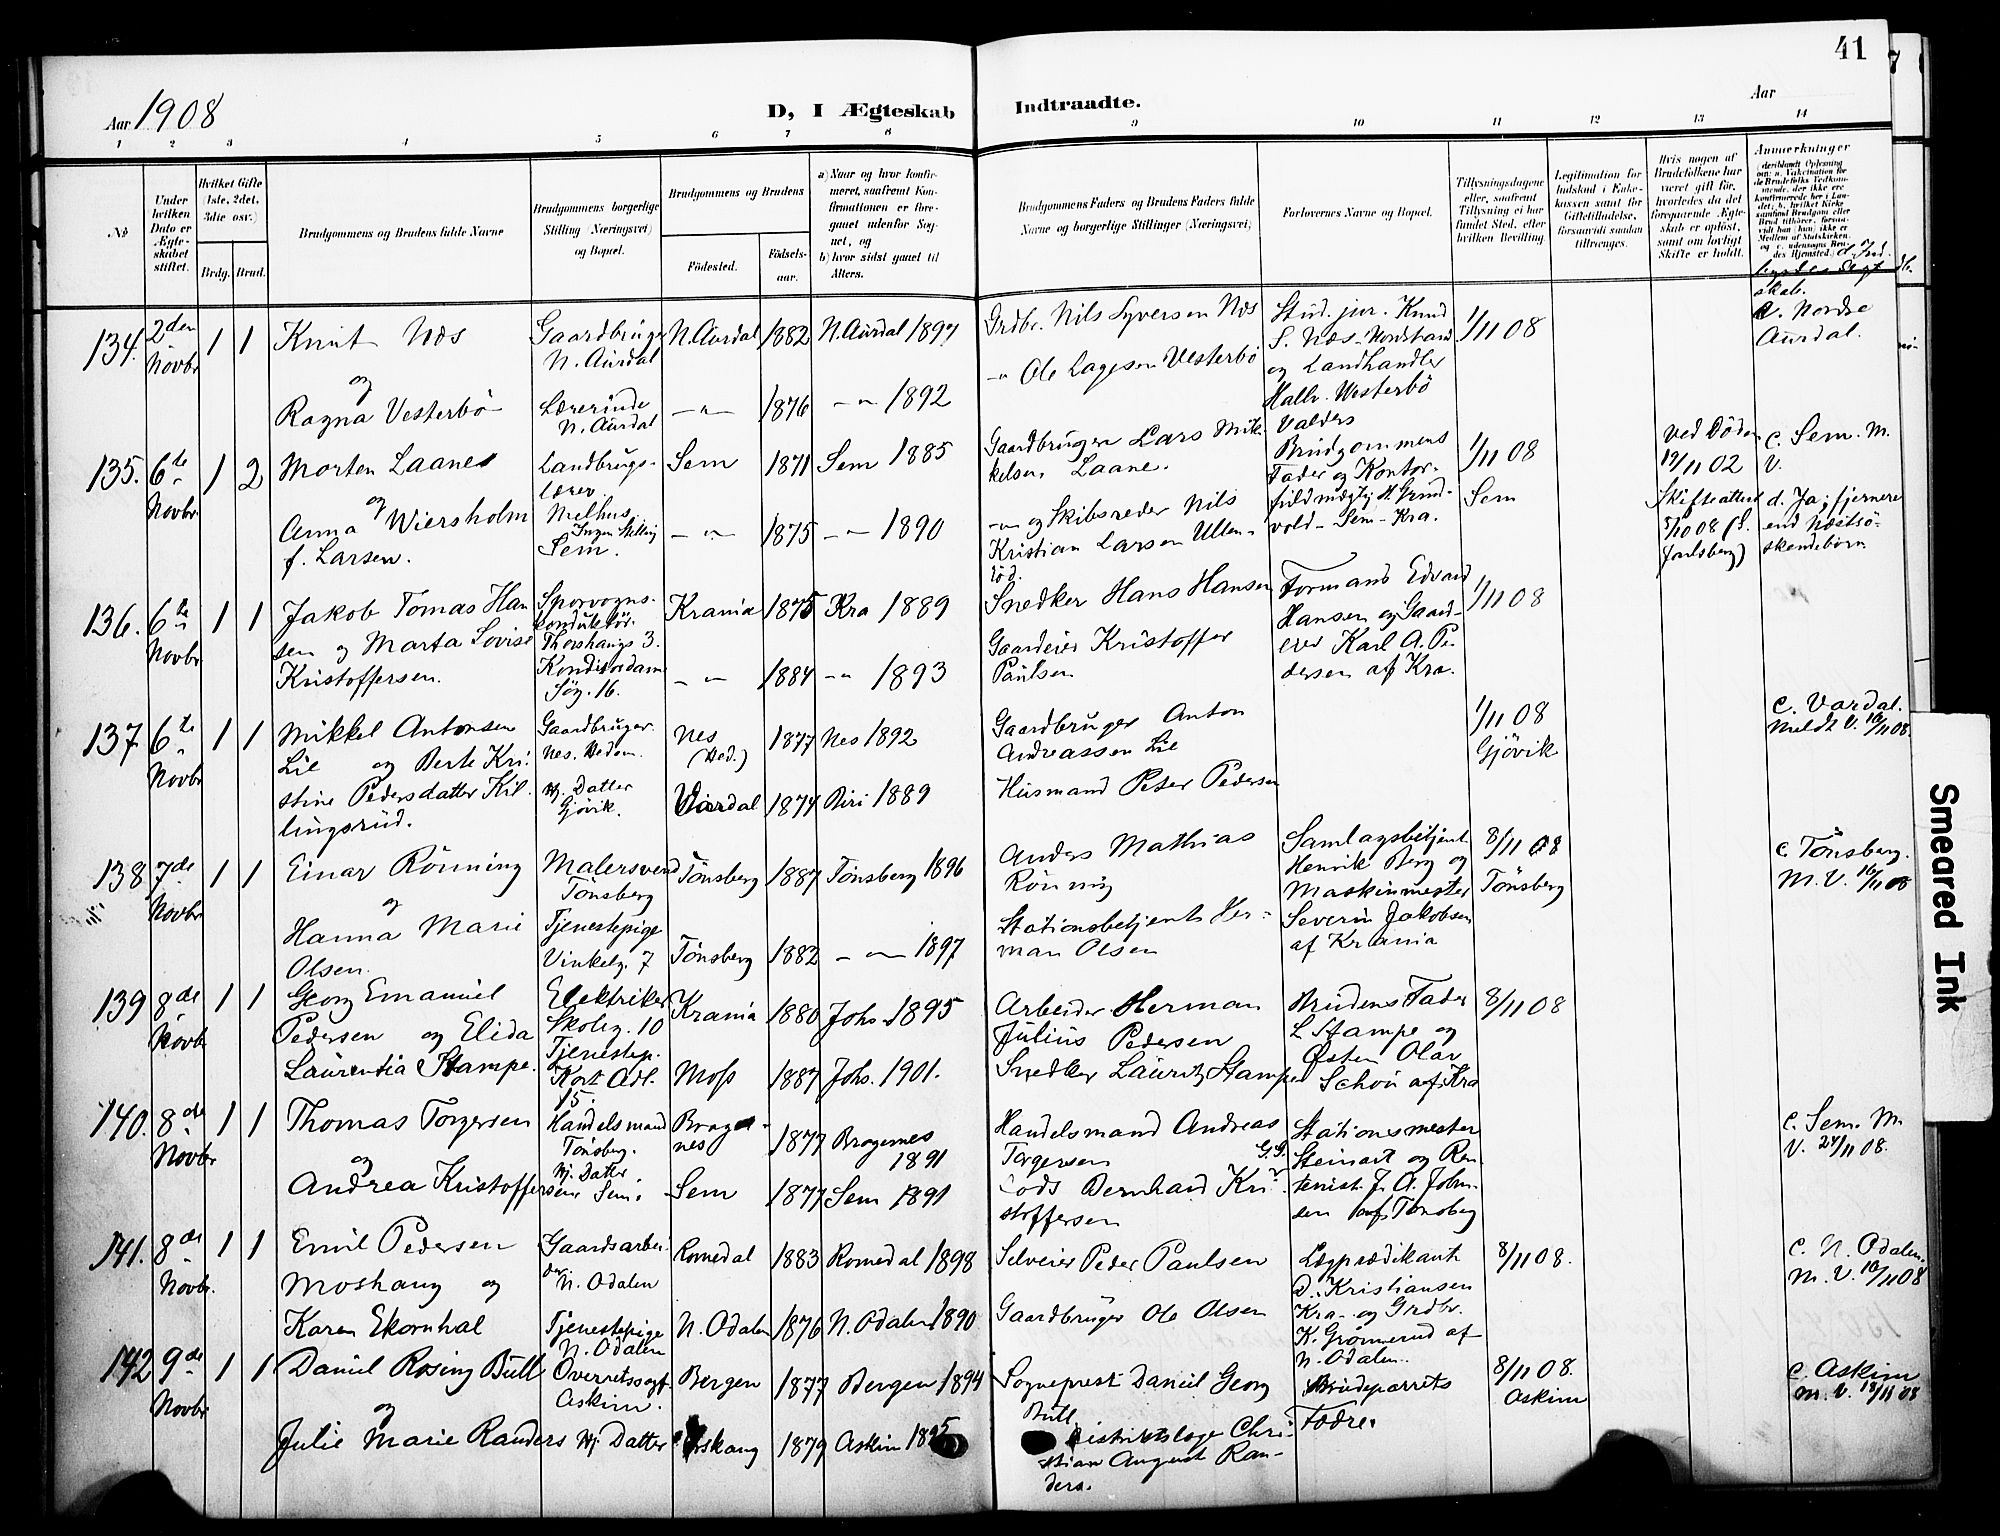 41
Aar 1908
D, I Ægteskab
Indtraadte.
Aar
1 2 3 4 5 6 7 8 9 10 11 12 13 14
No
Under hvilken Dato er Ægteskabet stiftet.
Hvilket Gifte (1ste, 2det, 3die osv.)
Brdg. Brud.
Brudgommens og Brudens fulde Navne
Brudgommens borgerlige Stilling (Næringsvei) og Bopæl.
Brudgommens og Brudens
Fødested.
Fødselsaar.
a) Naar og hvor konfirmeret, saafremt Konfirmationen er foregaaet udenfor Sognet, og
b) hvor sidst gaaet til Alters.
Brudgommens Faders og Brudens Faders fulde Navne og borgerlige Stillinger (Næringsvei)
Forlovernes Navne og Bopæl.
Tillysningsdagene eller, saafremt Tillysning ei har fundet Sted, efter hvilken Bevilling.
Legitimation for Indskud i Enkekassen samt for Giftetilladelse, forsaavidt saadan tiltrænges.
Hvis nogen af Brudefolkene har været gift før, hvorledes da det foregaaende Ægteskab er opløst, samt om lovligt Skifte er holdt.
Anmerkninger
134. 2den Novbr 1 1
Knut Næs
og
Ragna Vesterbö
Gaardbruger
N. Aurdal
Lærerinde
N. Aurdal
N. Aurdal 1882 N. Aurdal 1897
-"- 1876 -"- 1892
Grdbr. Nils Syversen Næs
-"- Ole Lagesen Vesterbö
Stud. jur. Knud
S. Næs - Nordstrand
og Landhandler
Hallv. Westerbö
Valders
1/11 08
c. Nordre
Aurdal.
135. 6te Novbr 1 2
Morten Laane
og
Anna Wiersholm
f. Larsen.
Landbrugs-
lærer
Melhus
Ingen Stilling
Sem.
Sem 1871 Sem 1885
-"- 1875 -"- 1890
Gaardbruger Lars Mik-
kelsen Laane.
-"- og Skibsreder Nils
Kristian Larsen Ullen-
röd.
Brudgommens
Fader og Kontor-
fuldmægtig H. Grind-
vold - Sem - Kra.
1/11 08
Sem
Ved Döden
19/11 02
Skifteattest
5/10 08 (S.
Jarlsberg)
c. Sem. M.
V.
d. Ja; fjernere
end Næstsö-
skendebörn.
136. 6te Novbr 1 1
Jakob Tomas Han
sen og Marta Lovise
Kristoffersen.
Sporvogns-
konduktör.
Thorshaugs 3.
Konditordam
Sög. 16.
Krania 1875 Kra 1889
-"- 1884 -"- 1893
Snedker Hans Hansen
Gaardeier Kristoffer
Paulsen
Formand Edvard
Hansen og Gaard-
eier Karl A. Pe-
dersen af Kra.
1/11 08
137 6te Novbr 1 1
Mikkel Antonsen
Lie og Berte Kri-
stine Pedersdatter Kil-
lingsrud.
Gaardbruger
Nes. Hedem.
Hj. Datter
Gjövik.
Nes (Hed.) 1877 Nes 1892
Vardal 1874 Biri 1889
Gaardbruger Anton
Andreassen Lie
Husmand Peter Pedersen
1/11 08
Gjövik
c. Vardal.
Meldt V. 10/11 08.
138 7de Novbr 1 1
Einar Rönning
og
Hanna Marie
Olsen.
Malersvend
Tönsberg
Tjenestepige
Vinkelg. 7
Tönsberg 1887 Tönsberg 1896
Tönsberg 1882 -"- 1897
Anders Mathias
Rönning
Stationsbetjent Her-
man Olsen
Samlagsbetjent
Henrik Berg og
Maskinmester
Severin Jakobsen
af Krania
8/11 08
Tönsberg
c. Tönsberg.
M. V. 10/11 08
139 8de Novbr 1 1
Georg Emanuel
Pedersen og Elida
Laurentia Stampe.
Elektriker
Skoleg. 10
Tjenestep.
Kort Adl.
15.
Krania 1880 Johs. 1895
Moss 1887 Johs. 1901.
Arbeider Herman
Julius Pedersen
Snedker Lauritz Stampe
Brudens Fader
L Stampe og
Östen Olav
Schou af Kra
8/11 08
140. 8de Novbr 1 1
Thomas Torgersen
og
Andrea Kristoffersen
Handelsmand
Tönsberg.
Hj. Datter
Sem.
Brager-
nes 1877 Bragernes
1891
Sem 1877 Sem 1891
Handelsmand Andreas
Torgersen
Gods Bernhard Kri-
stoffersen
Stationsmester
Steinart og Ren-
tenist J. A. John-
sen af Tönsberg
c. Sem. M.
V. 24/11 08.
141. 8de Novbr. 1 1
Emil Pedersen
Moshaug og
Karen Ekornhol
Gaardsarbei-
der.
N. Odalen
Tjenestepige
N. Odalen
Romedal 1883 Romedal 1898
N. Odalen 1876 N. Odalen 1890
Selveier Peder Paulsen
Gaardbruger Ole Olsen
Lægprædikant
D. Kristiansen
Kra. og Grdbr.
K. Grönnerud af
N. Odalen.
8/11 08.
c. N. Odalen.
M. V. 10/11 08
142 9de Novbr 1 1
Daniel Rosing Bull
og
Julie Marie Randers
Overretssagf.
Askim.
Hj. Datter
Bergen 1877 Bergen 1894
1879 Askim 1895
Sogneprest Daniel Georg
Bull
Distriktslæge Chri-
stian August Ran-
ders.
Brudeparrets
Fædre
8/11 08.
Askim
c. Askim
M. V. 18/11 08
Smeared Ink